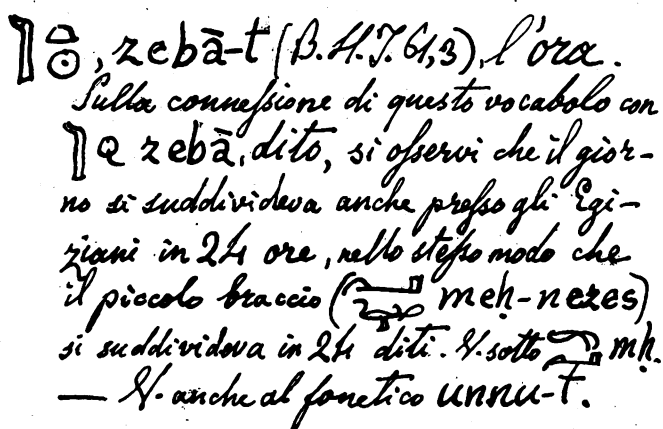 𓂭𓏏𓇳, zebā-t (B.H.I. 61,3), l'ora.
Sulla connessione di questo vocabolo con
𓂭 zebā, dito, si osservi che il gior-
no si suddivideva anche presso gli Egi-
ziani in 24 ore, nello stesso modo che
il piccolo braccio (meḥ-nezes)
si suddivideva in 24 diti. V. sotto mḥ.
— V. anche al fonetico unnu-t.